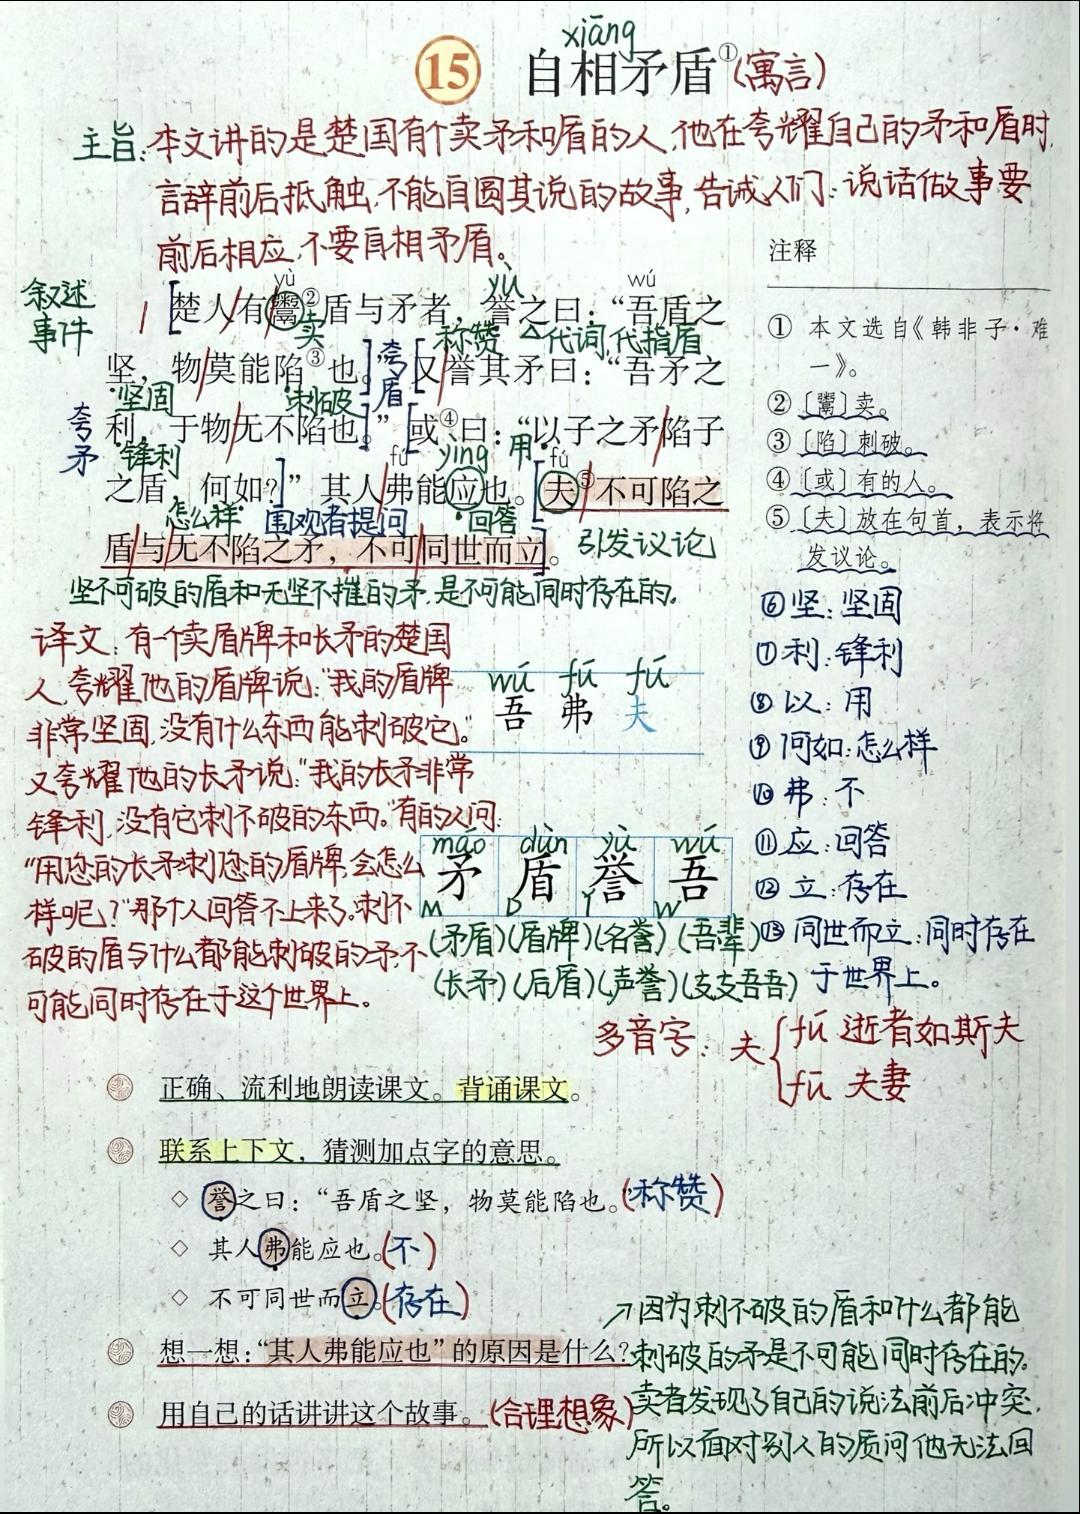 xiāng
15 自相矛盾①(寓言)
主旨:本文讲的是楚国有个卖矛和盾的人,他在夸耀自己的矛和盾时,
言辞前后抵触,不能自圆其说的故事,告诫人们:说话做事要
前后相应,不要自相矛盾。
注释
叙述
事件
yù yù wú
楚人有鬻②盾与矛者,誉之曰:“吾盾之
卖 称赞 代词 代指盾
坚,物莫能陷③也。”又誉其矛曰:“吾矛之
坚固 刺破 夸盾
夸矛
利,于物无不陷也。”或④曰:“以子之矛陷子
锋利 fú yìng 用 fú
之盾,何如?”其人弗能应也。夫⑤不可陷之
怎么样 围观者提问 回答
盾与无不陷之矛,不可同世而立。 引发议论
坚不可破的盾和无坚不摧的矛,是不可能同时存在的。
① 本文选自《韩非子·难
一》。
② 〔鬻〕卖。
③ 〔陷〕刺破。
④ 〔或〕有的人。
⑤ 〔夫〕放在句首,表示将
发议论。
⑥坚:坚固
⑦利:锋利
⑧以:用
⑨何如:怎么样
⑩弗:不
⑪应:回答
⑫立:存在
⑬同世而立:同时存在
于世界上。
译文:有一个卖盾牌和长矛的楚国
人,夸耀他的盾牌说:“我的盾牌
非常坚固,没有什么东西能刺破它。”
又夸耀他的长矛说:“我的长矛非常
锋利,没有它刺不破的东西。”有的人问:
“用您的长矛刺您的盾牌,会怎么
样呢?”那个人回答不上来了。刺不
破的盾与什么都能刺破的矛,不
可能同时存在于这个世界上。
wú fú fú
吾 弗 夫
máo dùn yù wú
矛 盾 誉 吾
M D Y W
(矛盾)(盾牌)(名誉)(吾辈)
(长矛)(后盾)(声誉)(支支吾吾)
多音字:夫{fú 逝者如斯夫
fū 夫妻
正确、流利地朗读课文。背诵课文。
联系上下文,猜测加点字的意思。
◇ 誉之曰:“吾盾之坚,物莫能陷也。”(称赞)
◇ 其人弗能应也。(不)
◇ 不可同世而立。(存在)
想一想:“其人弗能应也”的原因是什么?
→因为刺不破的盾和什么都能
刺破的矛是不可能同时存在的。
卖者发现了自己的说法前后冲突,
所以面对别人的质问他无法回
答。
用自己的话讲讲这个故事。(合理想象)